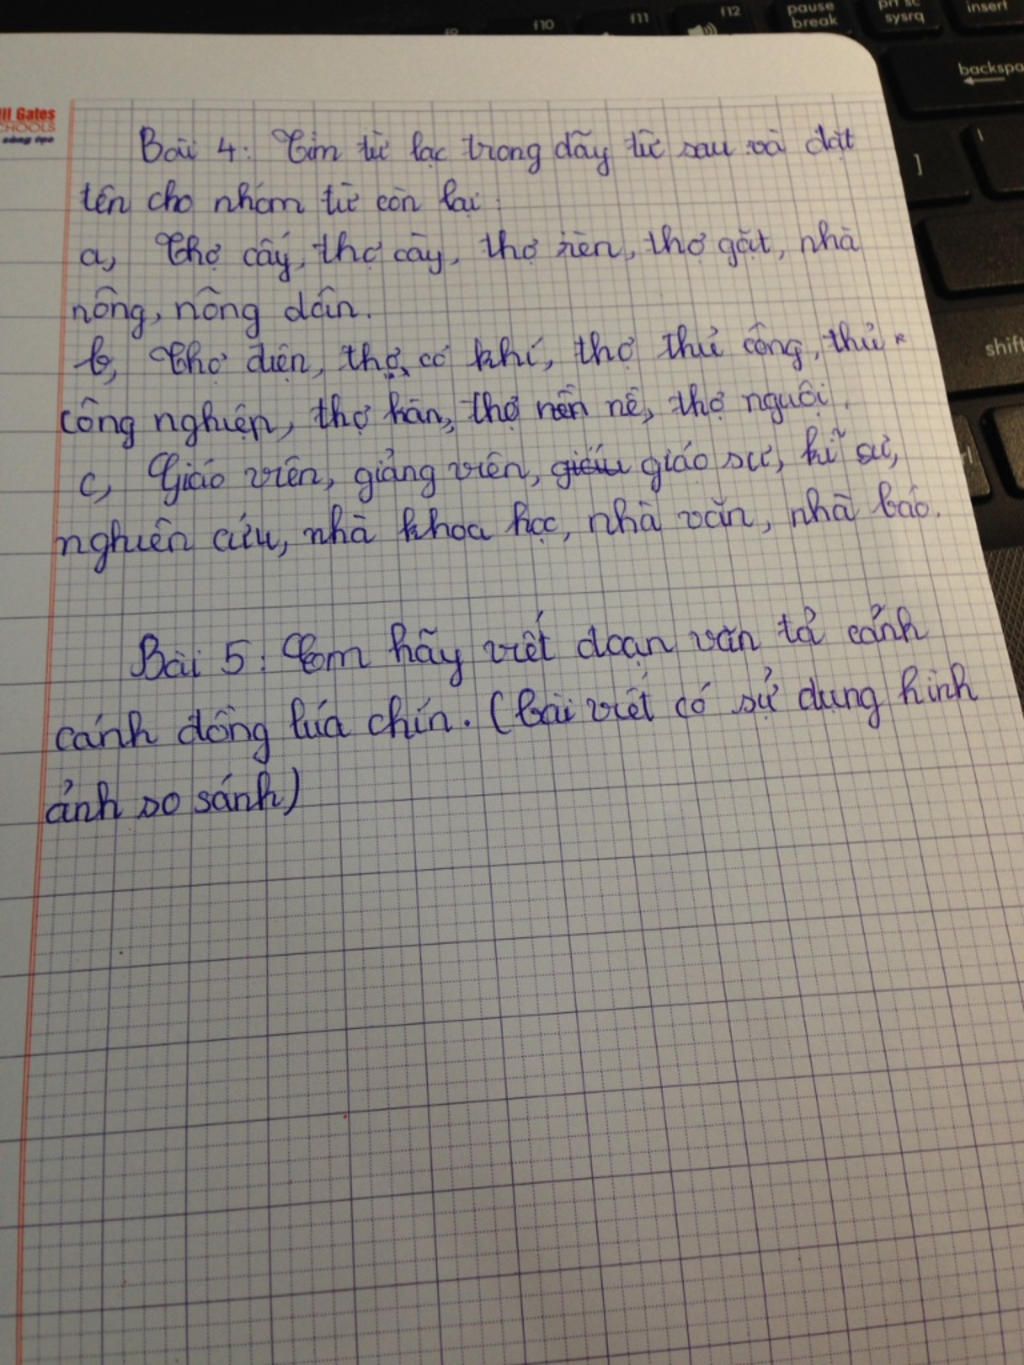 f10 f11 f12 pause break prt sc sysrq insert
backspa
]
shift
ill Gates
CHOOLS
Bài 4: Tìm từ lạc trong dãy từ sau và đặt
tên cho nhóm từ còn lại:
a, Thợ cấy, thợ cày, thợ rèn, thợ gặt, nhà
nông, nông dân.
b, Thợ điện, thợ cơ khí, thợ thủ công, thủ
công nghiệp, thợ hàn, thợ nề, thợ nguội.
c, Giáo viên, giảng viên, giáo sư, kĩ sư,
nghiên cứu, nhà khoa học, nhà văn, nhà báo.
Bài 5: Em hãy viết đoạn văn tả cảnh
cánh đồng lúa chín. (bài viết có sử dụng hình
ảnh so sánh)